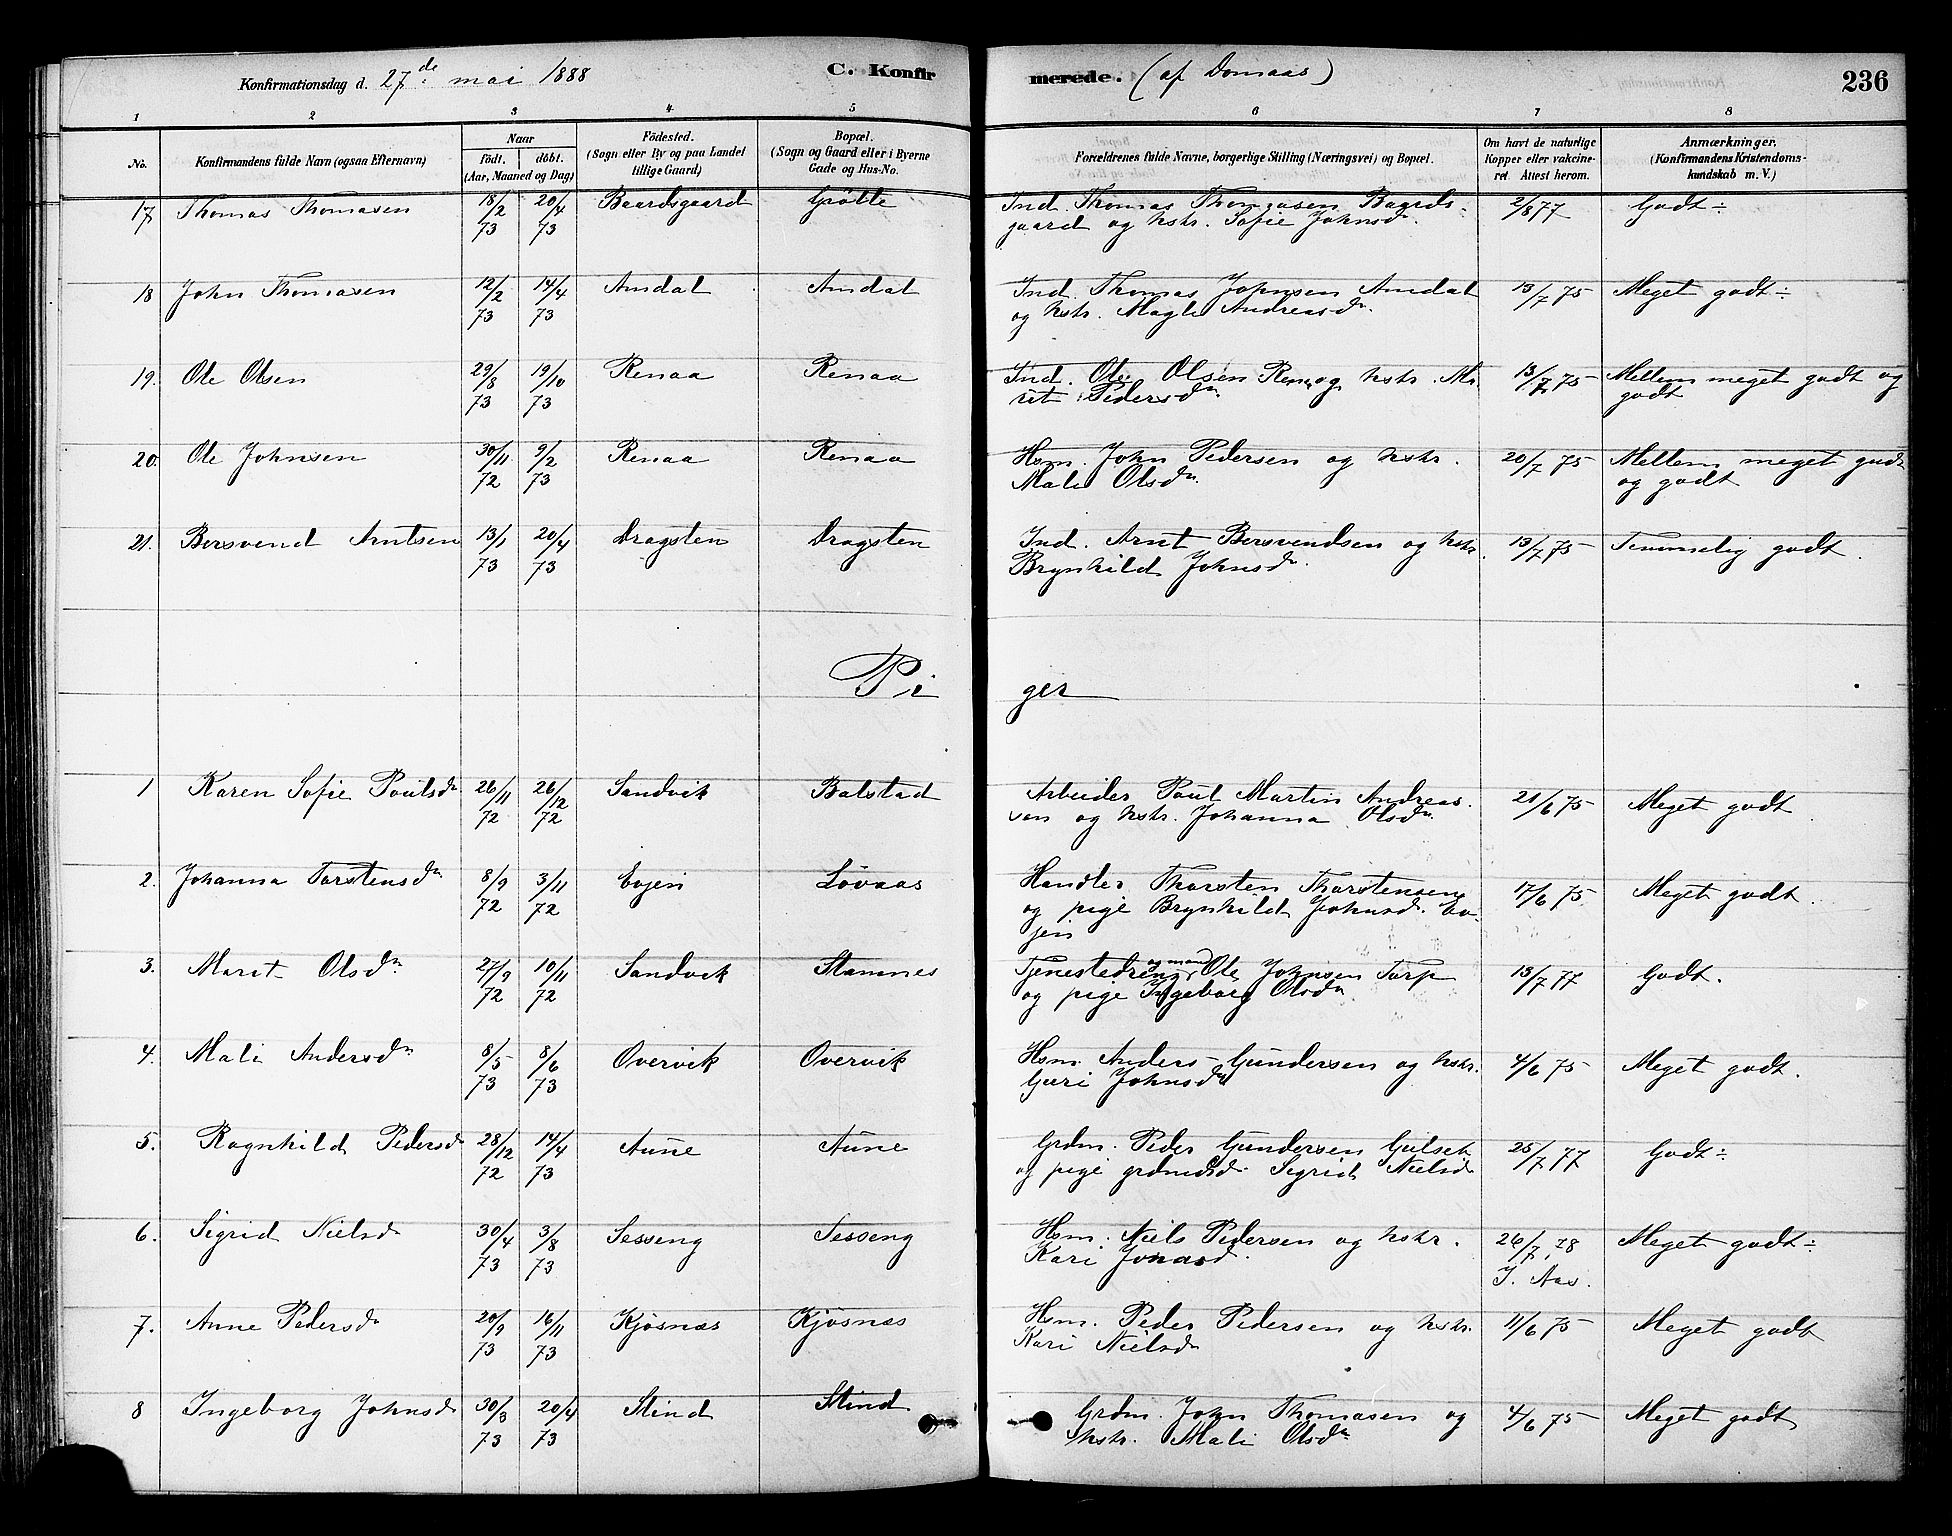 Konfirmationsdag d. 27de mai 1888 C. Konfirmerede. (af Domaas) 236
1 2 3 4 5 6 7 8
No. Konfirmandens fulde Navn (ogsaa Efternavn) Naar födt. döbt. (Aar, Maaned og Dag) Födested. (Sogn eller By og paa Landet tillige Gaard) Bopæl. (Sogn og Gaard eller i Byerne Gade og Hus-No. Forældrenes fulde Navne, borgerlige Stilling (Næringsvei) og Bopæl. Om havt de naturlige Kopper eller vakcineret. Attest herom. Anmærkninger. (Konfirmandens Kristendomskundskab m. V.)
17 Thomas Thomasen 18/2 73 20/4 73 Baardsgaard Grøtte Ind. Thomas Thomasen Baards- 2/8 77 Godt ÷
gaard og hstr. Sofie Johnsdr.
18 John Thomasen 12/2 73 14/4 73 Amdal Amdal Ind. Thomas Johnsen Amdal 13/7 75 Meget godt ÷
og hstr. Magli Andreasdr.
19. Ole Olsen 29/8 73 19/10 73 Renaa Renaa Ind. Ole Olsen Ren. og hstr. Ma- 13/7 75 Mellem meget godt og
rit Pedersdr. godt
20. Ole Johnsen 30/11 72 9/2 73 Renaa Renaa Hsm. John Pedersen og hstr. 20/7 75 Mellem meget godt
Mali Olsdr. og godt
21. Bersvend Arntsen 13/1 73 20/4 73 Dragsten Dragsten Ind. Arnt Bersvendsen og hstr. 13/7 75 Temmelig godt.
Brynhild Johnsdr.
Piger
1 Karen Sofie Paulsdr. 26/11 72 26/12 72 Sandvik Balstad Arbeider Paul Martin Andreas- 21/6 75 Meget godt
sen og hstr. Johanna Olsdr.
2. Johanna Torstensdr. 8/9 72 3/11 72 Evjen Løvaas Handler Thorsten Thorstensen 17/6 75 Meget godt.
og pige Brynhild Johnsd. Ev-
jen
3. Marit Olsdr. 27/9 72 10/11 72 Sandvik Stamnes Tjenestedreng og mand Ole Johnsen Torp 13/7 77 Godt.
og pige Ingeborg Olsdr.
4. Mali Andersdr. 8/5 73 8/6 73 Overvik Overvik Hsm. Anders Gundersen og hstr. 4/6 75 Meget godt.
Guri Johnsdr.
5. Ragnhild Pedersd. 28/12 72 14/4 73 Aune Aune Grdm. Peder Gundersen Gulset 25/7 77 Godt ÷
og pige grdmdsd. Sigrid Nielsd.
6. Sigrid Nielsd. 30/4 73 3/8 73 Sesseng Sesseng Hsm. Niels Pedersen og hstr. 26/7 78 Meget godt ÷
Kari Jonasd. J. Aas.
7. Anne Pedersd. 20/9 73 16/11 73 Kjøsnæs Kjøsnæs Hsm. Peder Pedersen og hstr. 11/6 75 Meget godt
Kari Nielsd.
8 Ingeborg Johnsd. 30/3 73 20/4 73 Slind Slind Grdm. John Thomasen og 4/6 75 Meget godt
hstr. Mali Olsdr.